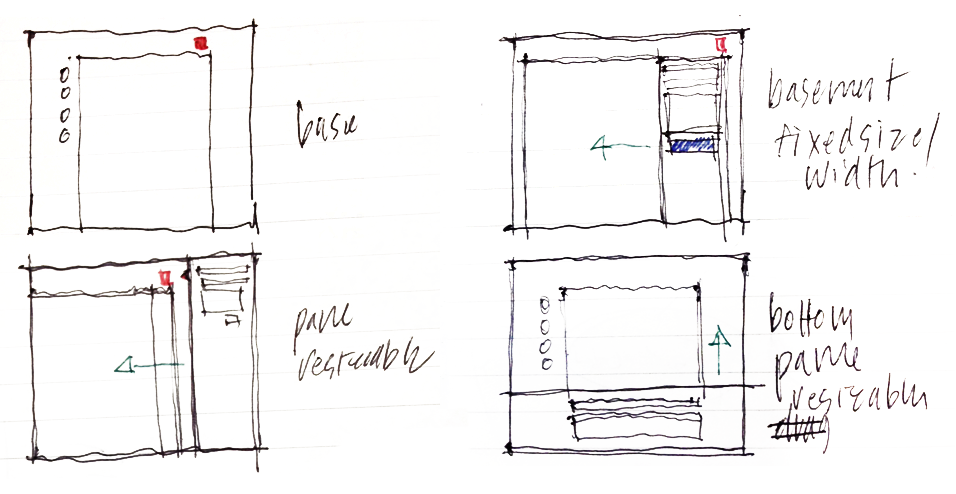 base
basement
fixed size/
width.
pane
resizable
bottom
pane
resizable